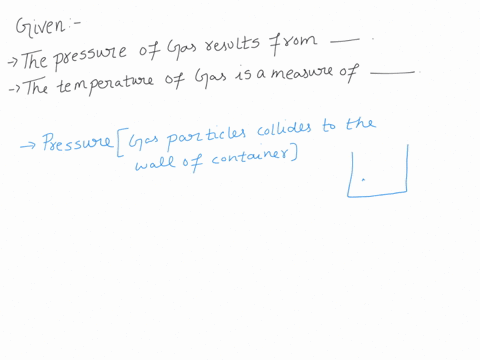 Given:-
→The pressure of Gas results from ___ .
→The temperature of Gas is a measure of ____.
→ Pressure [Gas particles collides to the
wall of container]